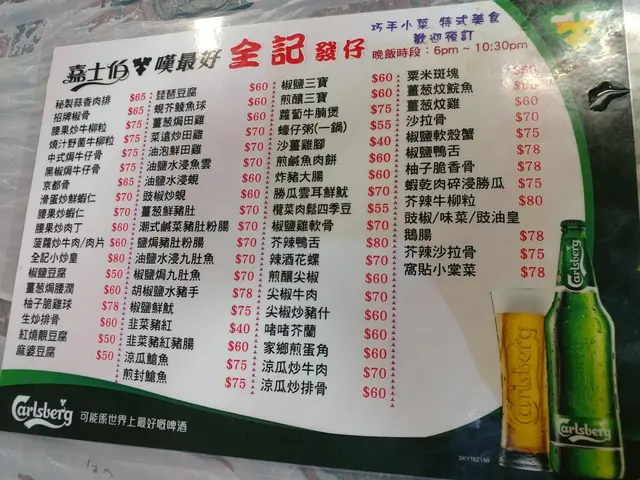 嘉士伯 嘆最好 全記發仔
巧手小菜 特式美食
歡迎預訂
晚飯時段：6pm ~ 10:30pm
秘製蒜香肉排 $65
招牌椒骨 $65
腰果炒牛柳粒 $70
燒汁野菌牛柳粒 $75
中式焗牛仔骨 $75
黑椒焗牛仔骨 $75
京都骨 $65
滑蛋炒鮮蝦仁 $70
腰果炒蝦仁 $70
腰果炒肉丁 $60
菠蘿炒牛肉/肉片 $60
全記小炒皇 $80
椒鹽豆腐 $50
薑葱焗腰潤 $60
柚子脆雞球 $78
生炒排骨 $60
紅燒靚豆腐 $50
麻婆豆腐 $50
琵琶豆腐 $60
蜆芥鯪魚球 $60
薑葱焗田雞 $70
菜遠炒田雞 $70
油泡鮮田雞 $70
油鹽水浸魚雲 $70
油鹽水浸蜆 $60
豉椒炒蜆 $60
薑葱鮮豬肚 $70
潮式鹹菜豬肚粉腸 $70
鹽焗豬肚粉腸 $70
油鹽水浸九肚魚 $70
椒鹽焗九肚魚 $70
胡椒鹽水豬手 $78
椒鹽鮮魷 $70
韭菜豬紅 $40
韭菜豬紅豬腸 $60
涼瓜鱠魚 $75
煎封鱠魚 $75
椒鹽三寶 $60
煎釀三寶 $60
蘿蔔牛腩煲 $75
蠔仔粥(一鍋) $55
沙薑雞腳 $40
煎鹹魚肉餅 $60
炸豬大腸 $60
勝瓜雲耳鮮魷 $70
欖菜肉鬆四季豆 $55
椒鹽雞軟骨 $70
芥辣鴨舌 $80
辣酒花螺 $70
煎釀尖椒 $60
尖椒牛肉 $70
尖椒炒豬什 $60
啫啫芥蘭 $60
家鄉煎蛋角 $60
涼瓜炒牛肉 $70
涼瓜炒排骨 $60
粟米斑塊
薑葱炆鯇魚 $60
薑葱炆雞 $60
沙拉骨 $70
椒鹽軟殼蟹 $75
椒鹽鴨舌 $78
柚子脆香骨 $78
蝦乾肉碎浸勝瓜 $75
芥辣牛柳粒 $80
豉椒/味菜/豉油皇
鵝腸 $78
芥辣沙拉骨 $75
窩貼小棠菜 $78
Carlsberg
Carlsberg
Carlsberg
Carlsberg 可能係世界上最好嘅啤酒
SKY16Z1A9